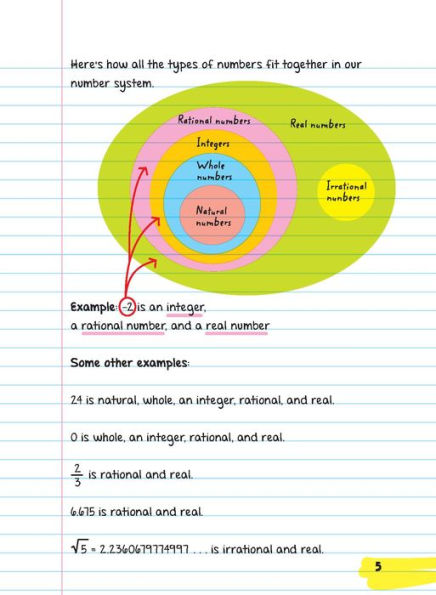 Here's how all the types of numbers fit together in our
number system.
Rational numbers
Real numbers
Integers
Whole
numbers
Irrational
numbers
Natural
numbers
Example: -2 is an integer,
a rational number, and a real number
Some other examples:
24 is natural, whole, an integer, rational, and real.
0 is whole, an integer, rational, and real.
2/3 is rational and real.
6.675 is rational and real.
√5 = 2.2360679774997 . . . is irrational and real.
5